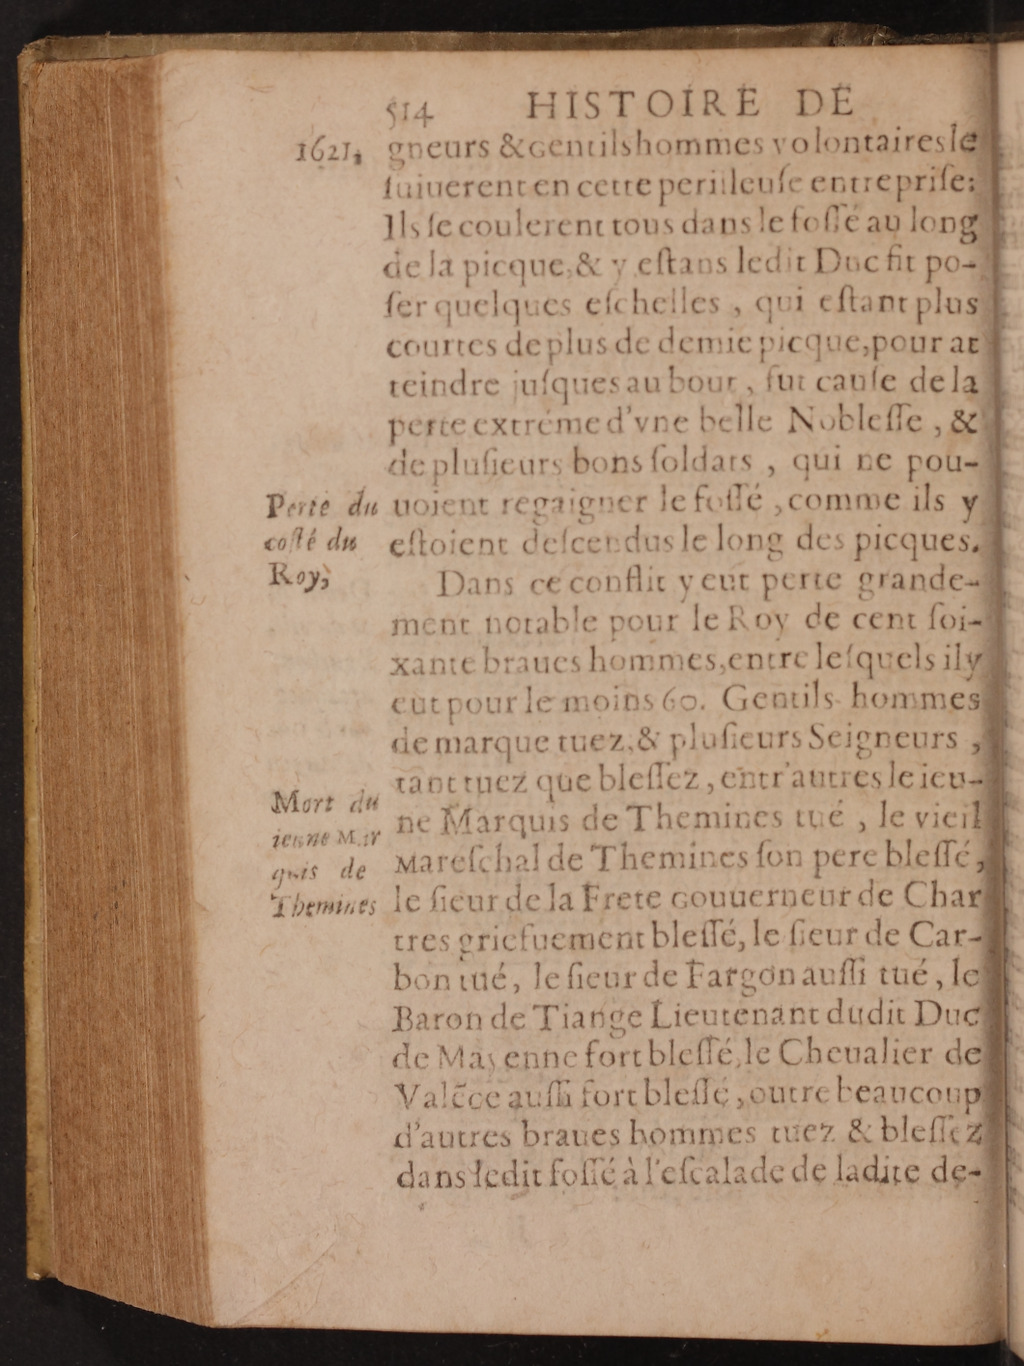 514 HISTOIRE DE
1621, gneurs & Gentilshommes volontaires le
ſuiuerent en cette perilleuſe entrepriſe:
Ils ſe coulerent tous dans le foſſé au long
de la picque, & y eſtans ledit Duc fit po-
ſer quelques eſchelles, qui eſtant plus
courtes de plus de demie picque, pour at
teindre juſques au bout, fut cauſe de la
perte extréme d'vne belle Nobleſſe, &
de pluſieurs bons ſoldats, qui ne pou-
Perte du uoient regaigner le foſſé, comme ils y
coſté du eſtoient deſcendus le long des picques.
Roy, Dans ce conflit y eut perte grande-
ment notable pour le Roy de cent ſoi-
xante braues hommes, entre leſquels il y
eut pour le moins 60. Gentils-hommes
de marque tuez, & pluſieurs Seigneurs,
tant tuez que bleſſez, entr'autres le ieu-
Mort du ne Marquis de Themines tué, le vieil
ieune Mar Mareſchal de Themines ſon pere bleſſé,
quis de le ſieur de la Frete Gouuerneur de Char
Themines tres griefuement bleſſé, le ſieur de Car-
bon tué, le ſieur de Fargon auſſi tué, le
Baron de Tiange Lieutenant dudit Duc
de Mayenne fort bleſſé, le Cheualier de
Valẽce auſſi fort bleſſé, outre beaucoup
d'autres braues hommes tuez & bleſſez
dans ledit foſſé à l'eſcalade de ladite de-